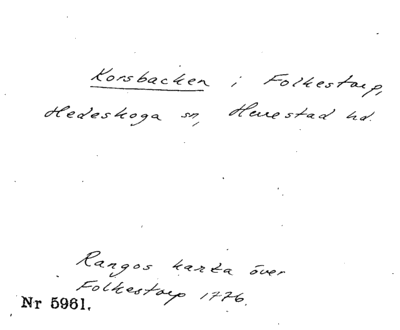 Korsbacken i Folkestorp,
Hedeskoga sn, Herrestad hd.
Rangos karta över
Folkestorp 1776.
Nr 5961.